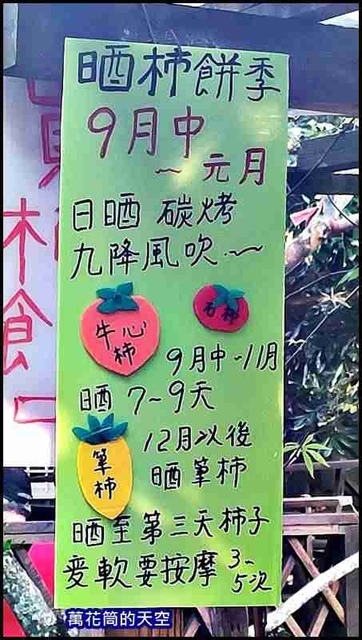 晒柿餅季
9月中
~元月
日晒 碳烤
九降風吹~
牛心
柿
石柿
9月中-11月
晒 7~9天
筆
柿
12月以後
晒筆柿
晒至第三天柿子
变軟要按摩 3~
5次
柿食
萬花筒的天空